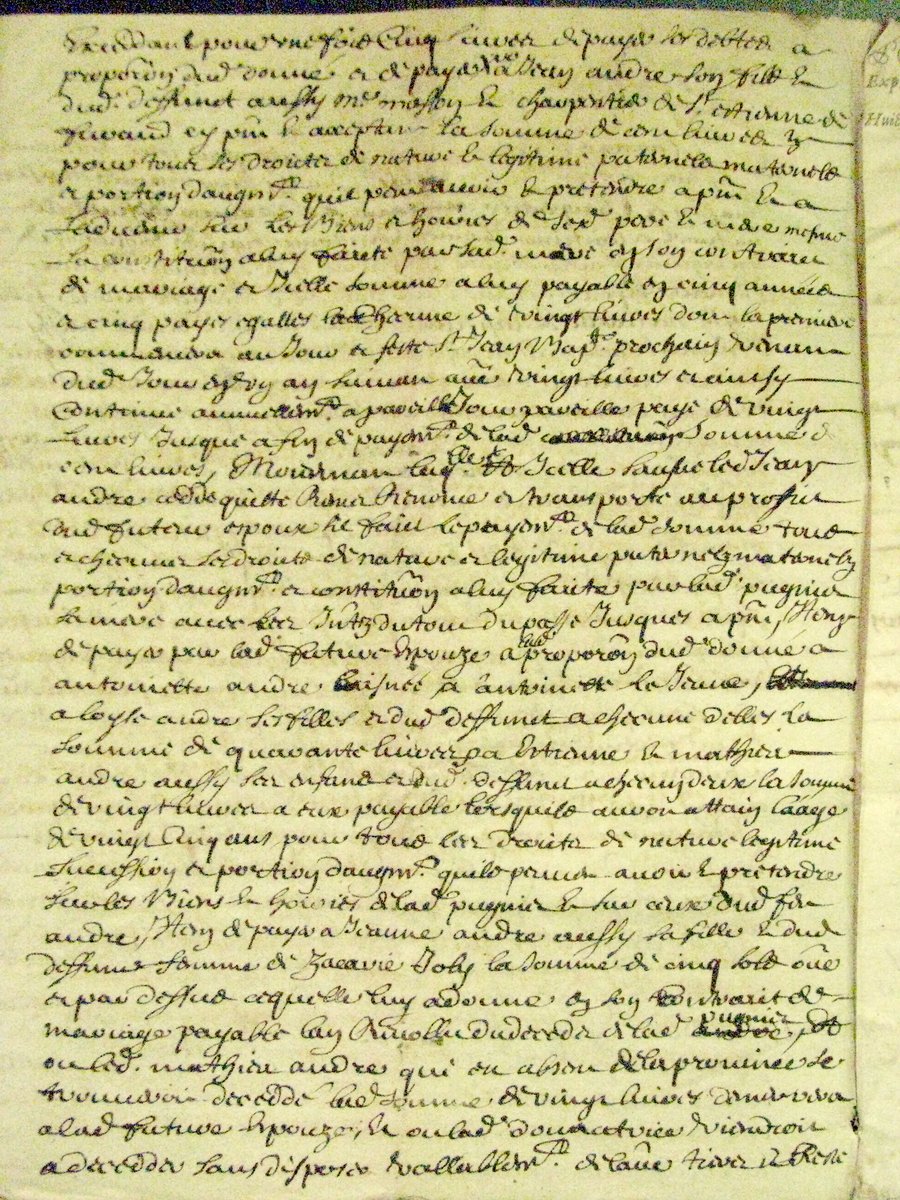 pour une fois cinq livres de payer ses debtes a
proporõn dud. donné et de payer a Jean andre son filz et
dud. deffunct aussy mre masson et charpentier de St estienne de
en pnt et acceptant la somme de cent livres tz
pour tous ses droicts de nature et legitime paternelle maternelle
et portion daugmt. quil peut avoir et pretendre a pnt et a
ladvenir sur les biens et hoiries de sesd. pere et mere mesme
la constitũon a luy faite par sad. mere en son contract
de mariage et Icelle somme a luy payable en cinq années
et cinq payes egalles chacune de vingt livres dont la premiere
commencera au Jour et feste St Jean Bapte. prochain venant
dud. Jour en un an suivant autre vingt livres et ainsy
continue annuellemt. a pareille Jour pareille paye de vingt
livres Jusques a fin de payemt. de lad. somme de
cent livres, Moienant laqlle Icelle somme led. Jean
andre cede quitte Remet Renonce et transporte au proffit
dud. futeur espoux lui faisant le payemt. de lad. somme tous
et chacuns ses droits de nature et legitime paternelz maternelz
portion daugmt. et constitũon a luy faite par lad. pugnier
sa mere avec les Intz du tout du passe Jusques a pnt, Item
de payer par lad. future Espouze a lad. proporõn dud. donné a
antoinette andre laisnée, a antoinette la Jeune,
a loyse andre ses filles et dud. deffunct a chacune delles la
somme de quarante livres, a Estienne et mathieu
andre aussy ses enfans et dud. deffunct a chacun deux la somme
de vingt livres a eux payable lorsquilz auront attain laage
de vingt cinq ans pour tous les droits de nature legitime
sucession et portion daugmt. quilz peuvent avoir et pretendre
sur les biens et hoiries de lad. pugnier et sur ceux dud. feu
andre, Item de payer a Jeanne andre aussy sa fille et dud.
deffunct femme de Zacarie Joly la somme de cinq solz oûe
et par dessus ce quelle luy a donné en son contrait de
mariage payable lan Revollu du deceds de lad. pugnier, Et
ou led. mathieu andre qui est absent de la province se
trouveroit decedde lad. somme de vingt livres demeurera
a lad. future Espouze, Et ou lad. donnatrice viendroit
a decedder sans disposer vallablemt. de laûe tiers Et Reste